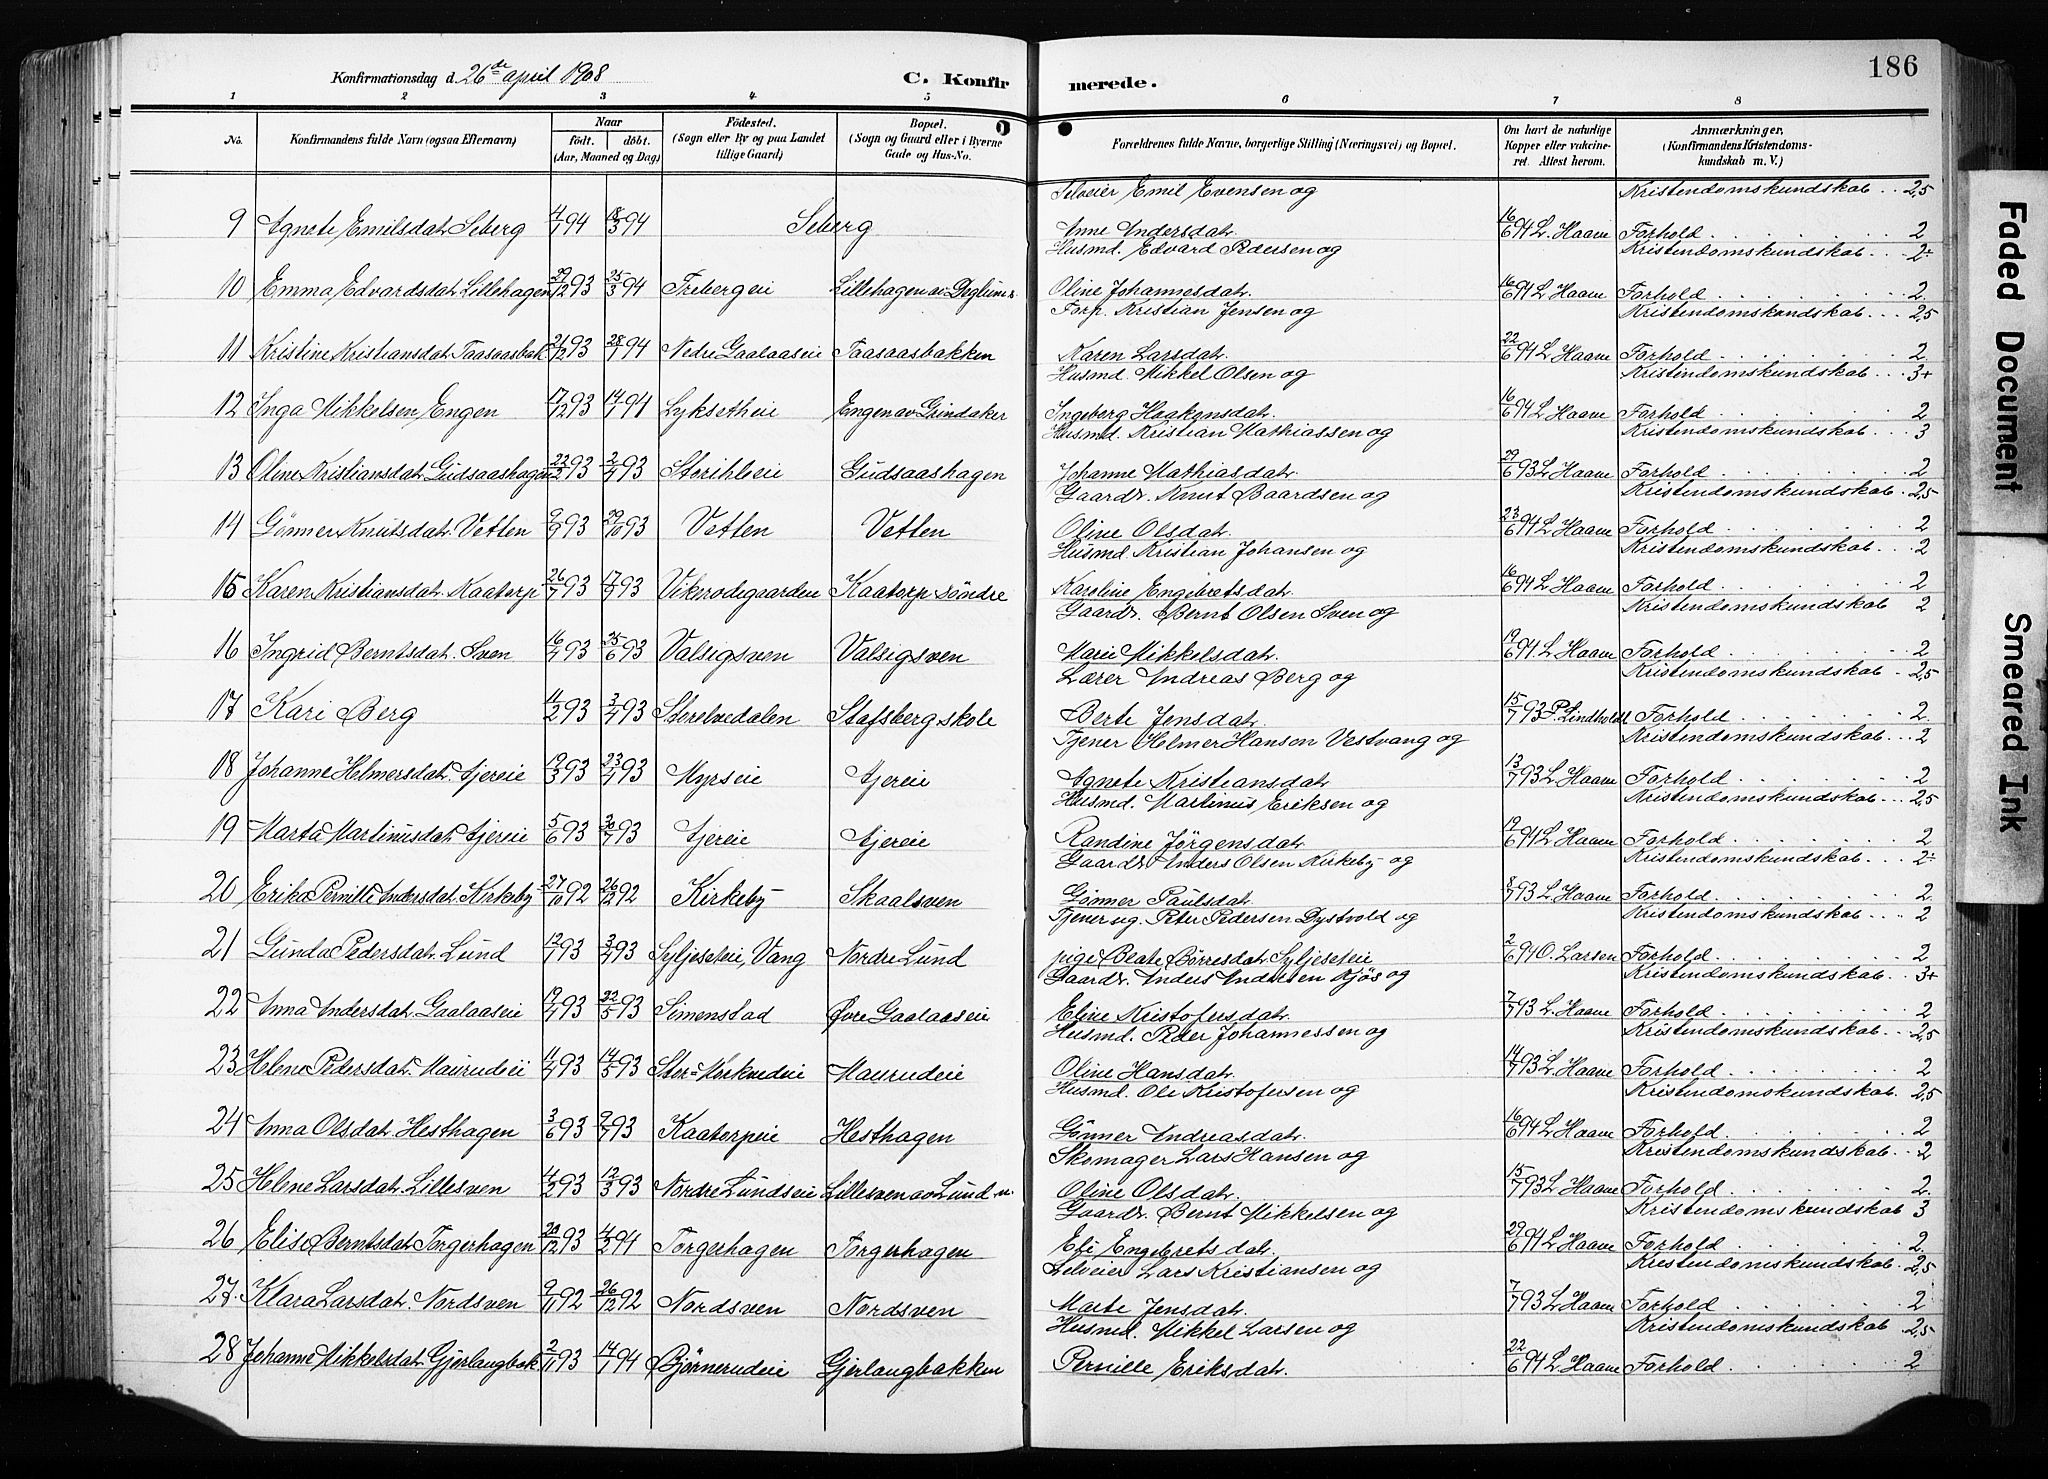 Konfirmationsdag d. 26de april 1908
C. Konfirmerede.
186
1 2 3 4 5 6 7 8
No. Konfirmandens fulde Navn (ogsaa Efternavn) Naar født. døbt. (Aar, Maaned og Dag) Fødested. (Sogn eller By og paa Landet tillige Gaard) Bopæl. (Sogn og Gaard eller i Byerne Gade og Hus-No. Forældrenes fulde Navne, borgerlige Stilling (Næringsvei) og Bopæl. Om havt de naturlige Kopper eller vaccineret. Attest herom. Anmærkninger, (Konfirmandens Kristendomskundskab m. V.)
Selveier Emil Evensen og Kristendomskundskab . . 2,5
9 Agnete Emilsdat. Seberg 4/1 94 18/3 94 Seberg Anne Andersdat. 16/6 94 L. Haave Forhold 2
Husmd. Edvard Pedersen og Kristendomskundskab . . 2÷
10 Emma Edvardsdat. Lillehagen 29/12 93 25/3 94 Trebergeie Lillehagen av Deglum Oline Johannesdat. 16/6 94 L. Haave Forhold 2
Forp. Kristian Jensen og Kristendomskundskab . . 2,5
11 Kristine Kristiansdat. Taasaasbak 21/12 93 28/1 94 Nedre Gaalaaseie Taasaasbakken Karen Larsdat. 22/6 94 L. Haave Forhold 2
Husmd. Mikkel Olsen og Kristendomskundskab . . 3+
12 Inga Mikkelsen Engen 17/12 93 14/1 94 Lyksetheie Engen av Grindaker Ingeborg Haakensdat. 16/6 94 L. Haave Forhold 2
Husmd. Kristian Mathiassen og Kristendomskundskab . . 3
13 Oline Kristiansdat. Gudsaashagen 22/2 93 2/4 93 Gudsaashagen Johanne Mathiasdat. 29/6 93 L. Haave Forhold 2
Gaardr. Knut Baardsen og Kristendomskundskab . 2,5
14 Gønner Knutsdat. Vetten 9/9 93 29/10 93 Vetten Vetten Oline Olsdat. 23/6 94 L. Haave Forhold 2
Husmd. Kristian Johansen og Kristendomskundskab . . . 2
15 Karen Kristiansdat. Kaatorp 26/7 93 17/9 93 Vikerødegaarden Kaatorp søndre Karoline Engebretsdat. 16/6 94 L. Haave Forhold 2
Gaardr. Bernt Olsen Sven og Kristendomskundskab 2
16 Ingrid Berntsdat. Sven 16/4 93 25/6 93 Valsigsven Valsigsven Marie Mikkelsdat. 19/6 94 L. Haave Forhold 2
Lærer Andreas Berg og Kristendomskundskab . 2,5
17 Kari Berg 4/2 93 3/4 93 Storelvedalen Stafsberg skole Berte Jensdat. 15/7 93 P. Lindholdt Forhold 2
Tjener Helmer Hansen Vestvang og Kristendomskundskab . . 2
18 Johanne Helmersdat. Ajereie 19/3 93 23/4 93 Myrseie Ajereie Agnete Kristiansdat. 13/7 93 L. Haave Forhold 2
Husmd. Martinus Eriksen og Kristendomskundskab . . . 2,5
19 Marta Martinusdat. Ajereie 5/6 93 30/7 93 Ajereie Ajereie Randine Jørgensdat. 19/6 94 L. Haave Forhold 2
Gaardr. Anders Olsen Kirkeby og Kristendomskundskab . . . 2÷
20 Erika Pernille Andersdat. Kirkeby 27/10 92 26/12 92 Kirkeby Skaalsven Gønner Paulsdat. 8/7 93 L. Haave Forhold 2
Tjener ug. Peter Pedersen Dystvold og Kristendomskundskab . . . 2
21 Gunda Pedersdat. Lund 12/1 93 3/4 93 Syljeseteie, Vang Nordre Lund pige Beate Børresdat. Syljeseteie 2/6 94 O. Larsen Forhold 2
Gaardr. Anders Andersen Kjøs og Kristendomskundskab . . 3+
22 Anna Andersdat. Gaalaaseie 19/4 93 22/5 93 Simenstad Øvre Gaalaaseie Eline Kristofersdat. 7/7 93 L. Haave Forhold 2
Husmd. Peder Johannessen og Kristendomskundskab . . 2,5
23 Helene Pedersdat. Maurudeie 11/4 93 14/5 93 Maurudeie Oline Hansdat. 14/7 93 L. Haave Forhold 2
Husmd. Ole Kristofersen og Kristendomskundskab . 2,5
24 Anna Olsdat. Hesthagen 3/6 93 9/7 93 Kaatorpeie Hesthagen Gønner Andreasdat. 16/6 94 L. Haave Forhold 2
Skomager Lars Hansen og Kristendomskundskab . . 2
25 Helene Larsdat. Lillesven 4/2 93 12/3 93 Nordre Lundseie Lillesven av Lund n. Oline Olsdat. 15/7 93 L. Haave Forhold 2
Gaardr. Bernt Mikkelsen og Kristendomskundskab 3
26 Elise Berntsdat. Torgerhagen 20/12 93 4/2 94 Torgerhagen Torgerhagen Eli Engebretsdat. 29/6 94 L. Haave Forhold 2
Selveier Lars Kristiansen og Kristendomskundskab . . 2,5
27. Klara Larsdat. Nordsven 9/11 92 26/12 92 Nordsven Nordsven Marte Jensdat. 7/7 93 L. Haave Forhold 2
Husmd. Mikkel Larsen og Kristendomskundskab . 2,5
28 Johanne Mikkelsdat. Gjerlangbak 2/11 93 14/1 94 Bjørnerudeie Gjerlangbakken Pernille Eriksdat. 22/6 94 L. Haave Forhold 2
Faded Document
Smeared Ink